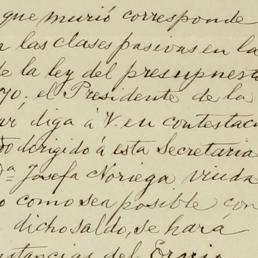 que murió corresponde
n las clases pasivas en la
de la ley del presupuesto
70. el Presidente de la
diga á V. en contestaci
dirigido á esta Secretaria
Dª Josefa Noriega viuda
o como sea posible con
dicho saldo, se hará
stancias del Erario